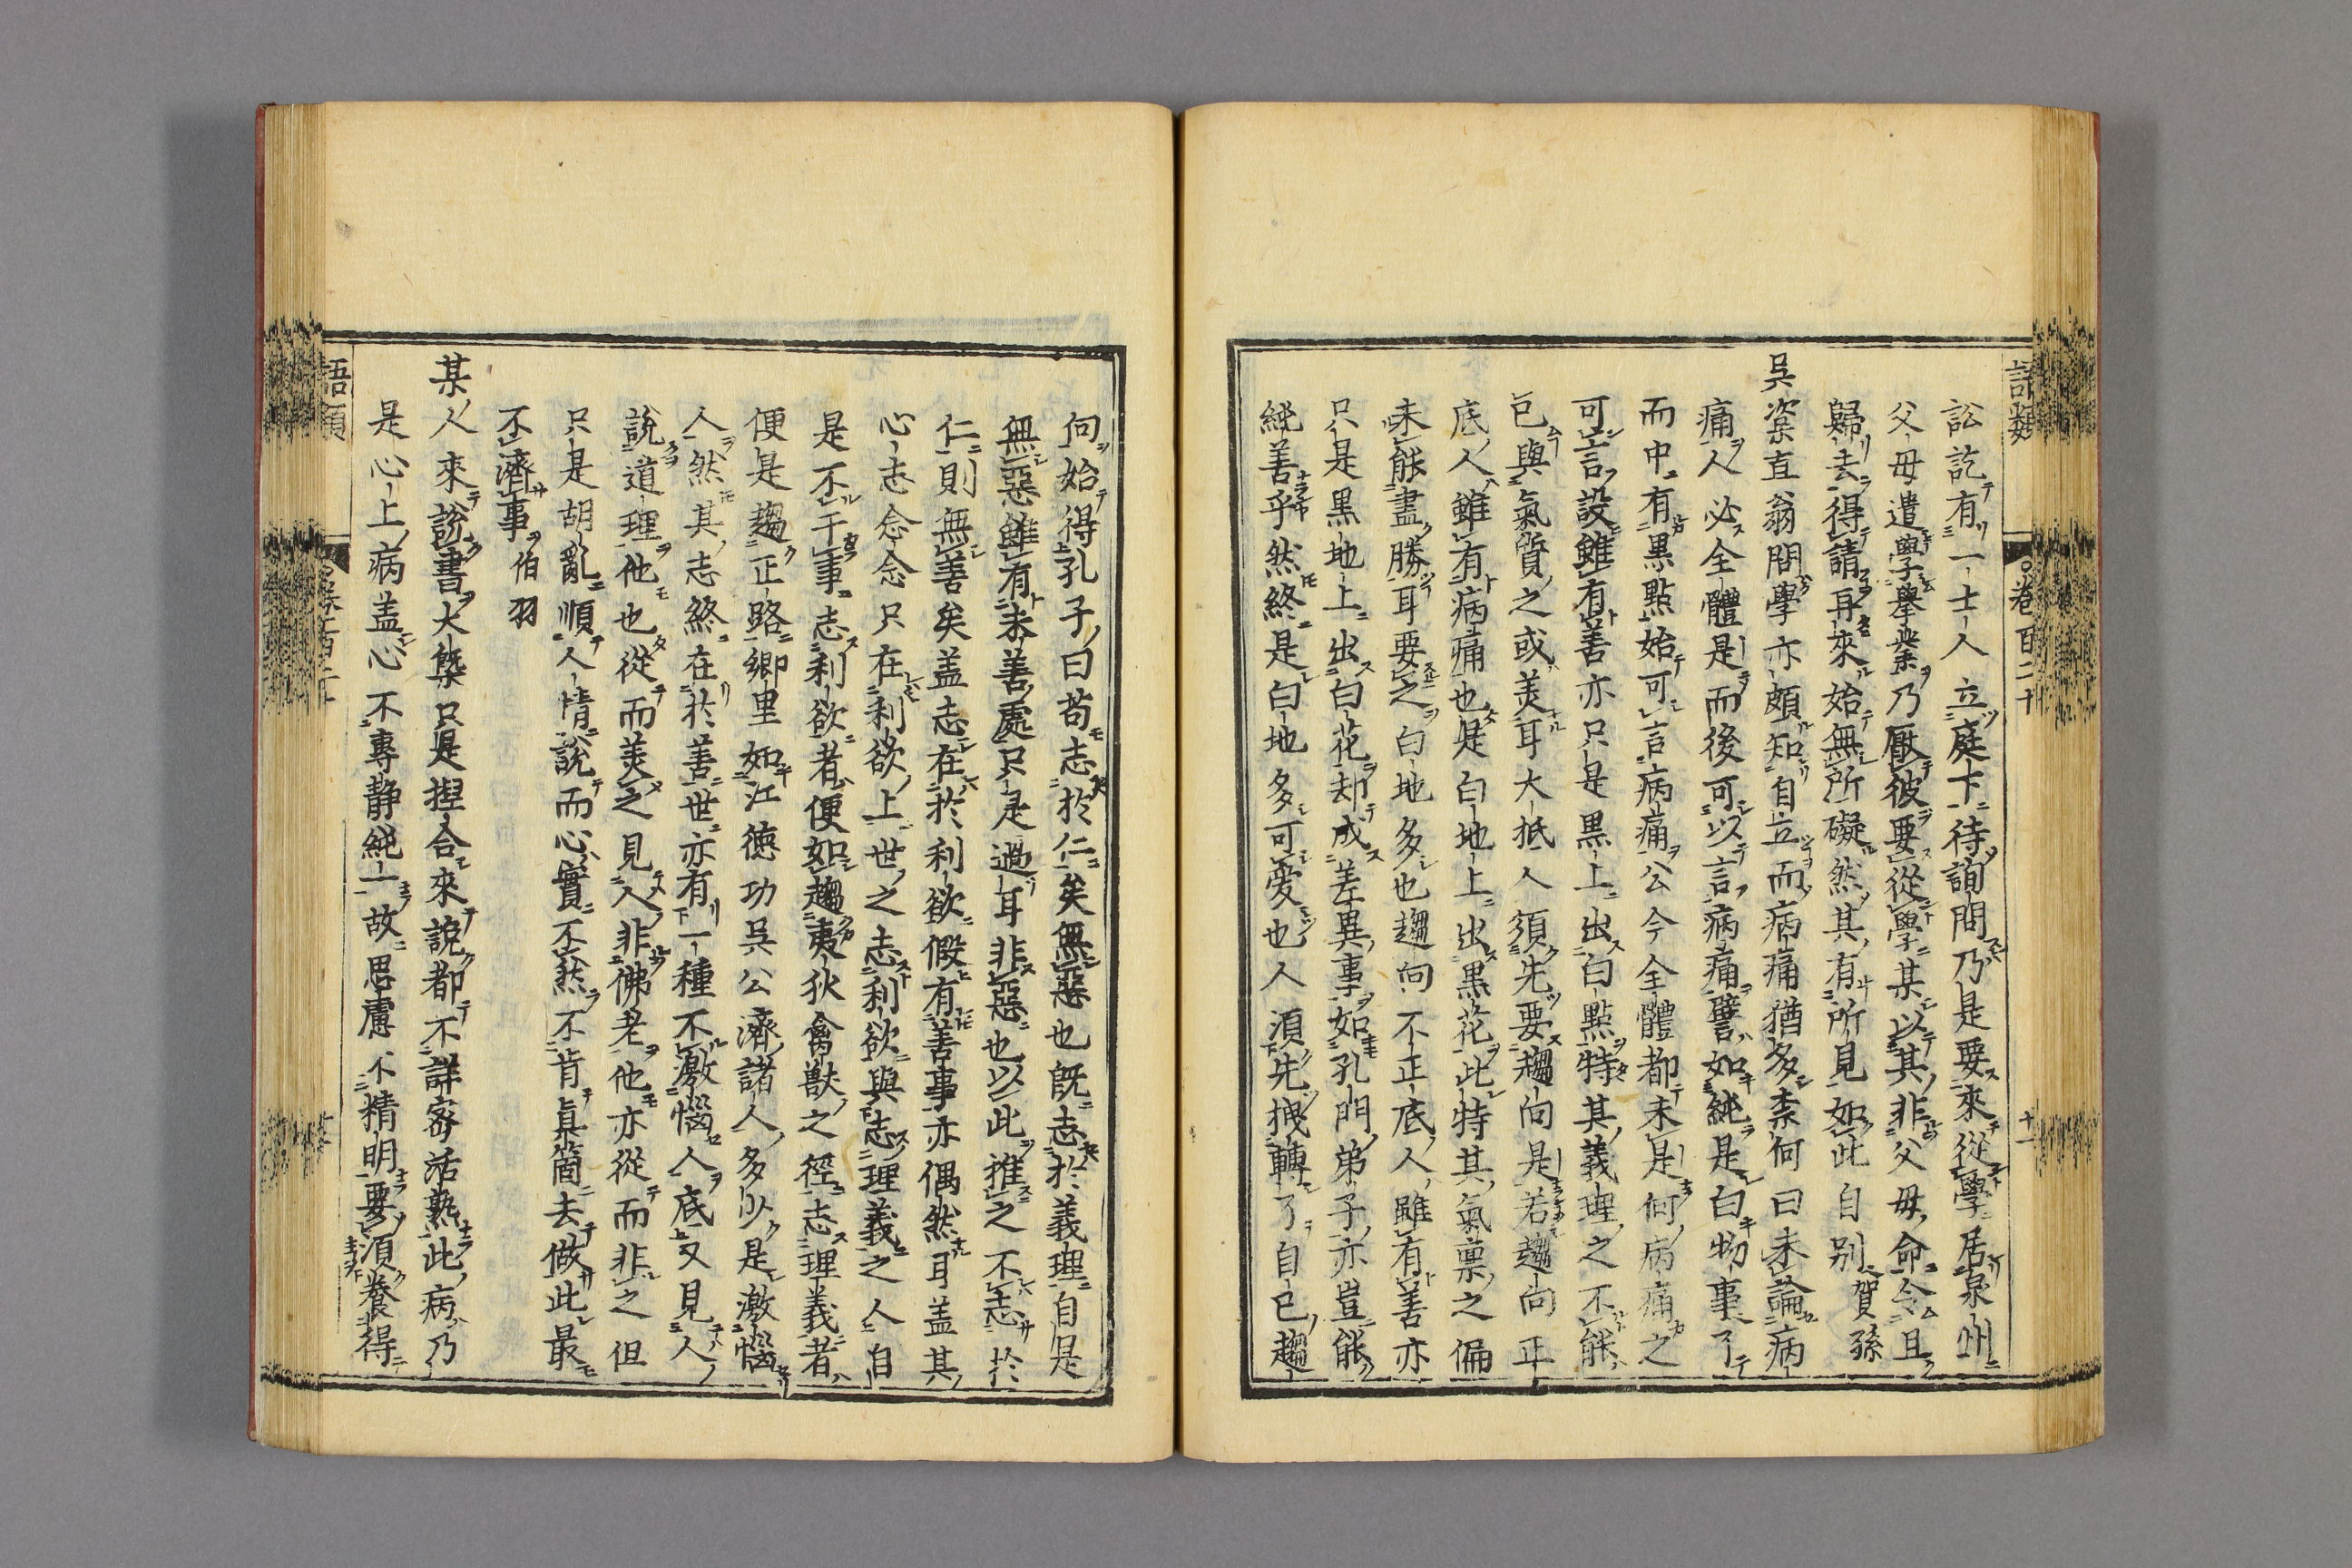 語類
卷百二十
十一
訟訖有一士人立庭下待詢問乃是要來從學居泉州
父母遣學擧業乃厭彼要從學某以其非父母命令且
歸去得請再來始無所礙然其有所見如此自别賀孫
吳楶直翁問學亦頗知自立而病痛猶多柰何曰未論病
痛人必全體是而後可以言病痛譬如純是白物事了
而中有黒點始可言病痛公今全體都未是何病痛之
可言設雖有善亦只是黒上出白點特其義理之不能
已與氣質之或美耳大抵人須先要趨向是若趨向正
底人雖有病痛也是白地上出黒花此特其氣禀之偏
未能盡勝耳要之白地多也趨向不正底人雖有善亦
只是黒地上出白花却成差異事如孔門弟子亦豈能
純善乎然終是白地多可愛也人須先拽轉了自己趨
向始得孔子曰苟志於仁矣無惡也既志於義理自是
無惡雖有未善處只是過耳非惡也以此推之不志於
仁則無善矣盖志在於利欲假有善事亦偶然耳盖其
心志念念只在利欲上世之志利欲與志理義之人自
是不干事志利欲者便如趨夷狄禽獸之徑志理義者
便是趨正路鄉里如江德功吳公濟諸人多少是激惱
人然其志終在於善世亦有一種不激惱人底又見人
說道理他也從而美之見人非佛老他亦從而非之但
只是胡亂順人情說而心實不然不肯真箇去做此最
不濟事伯羽
某人來說書大槩只是揑合來說都不詳密活熟此病乃
是心上病盖心不專靜純一故思慮不精明要須養得
語類